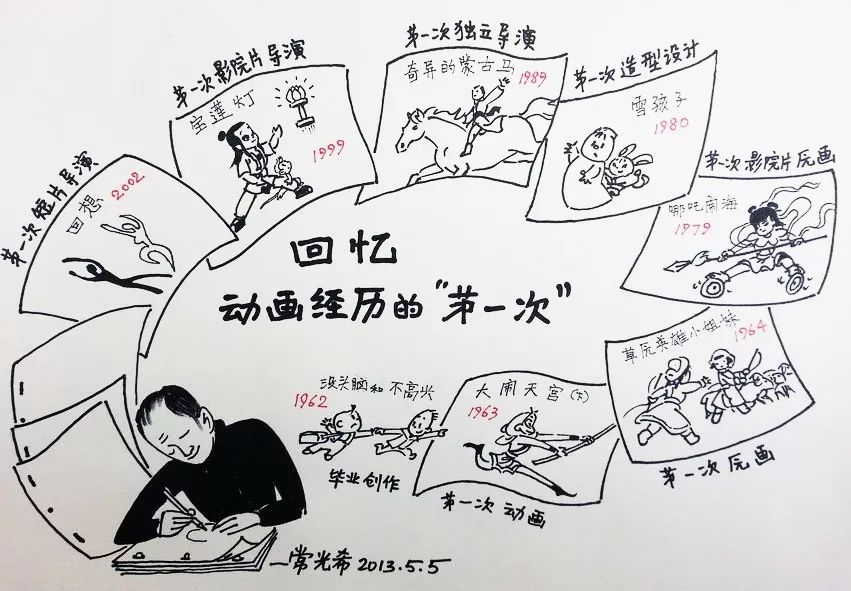 回忆
动画经历的“第一次”
没头脑和不高兴
1962
毕业创作
大闹天宫(下)
1963
第一次动画
草原英雄小姐妹
1964
第一次原画
第一次影院片原画
哪吒闹海
1979
第一次造型设计
雪孩子
1980
第一次独立导演
奇异的蒙古马
1989
第一次影院片导演
宝莲灯
1999
第一次短片导演
回想
2002
—常光希 2013.5.5